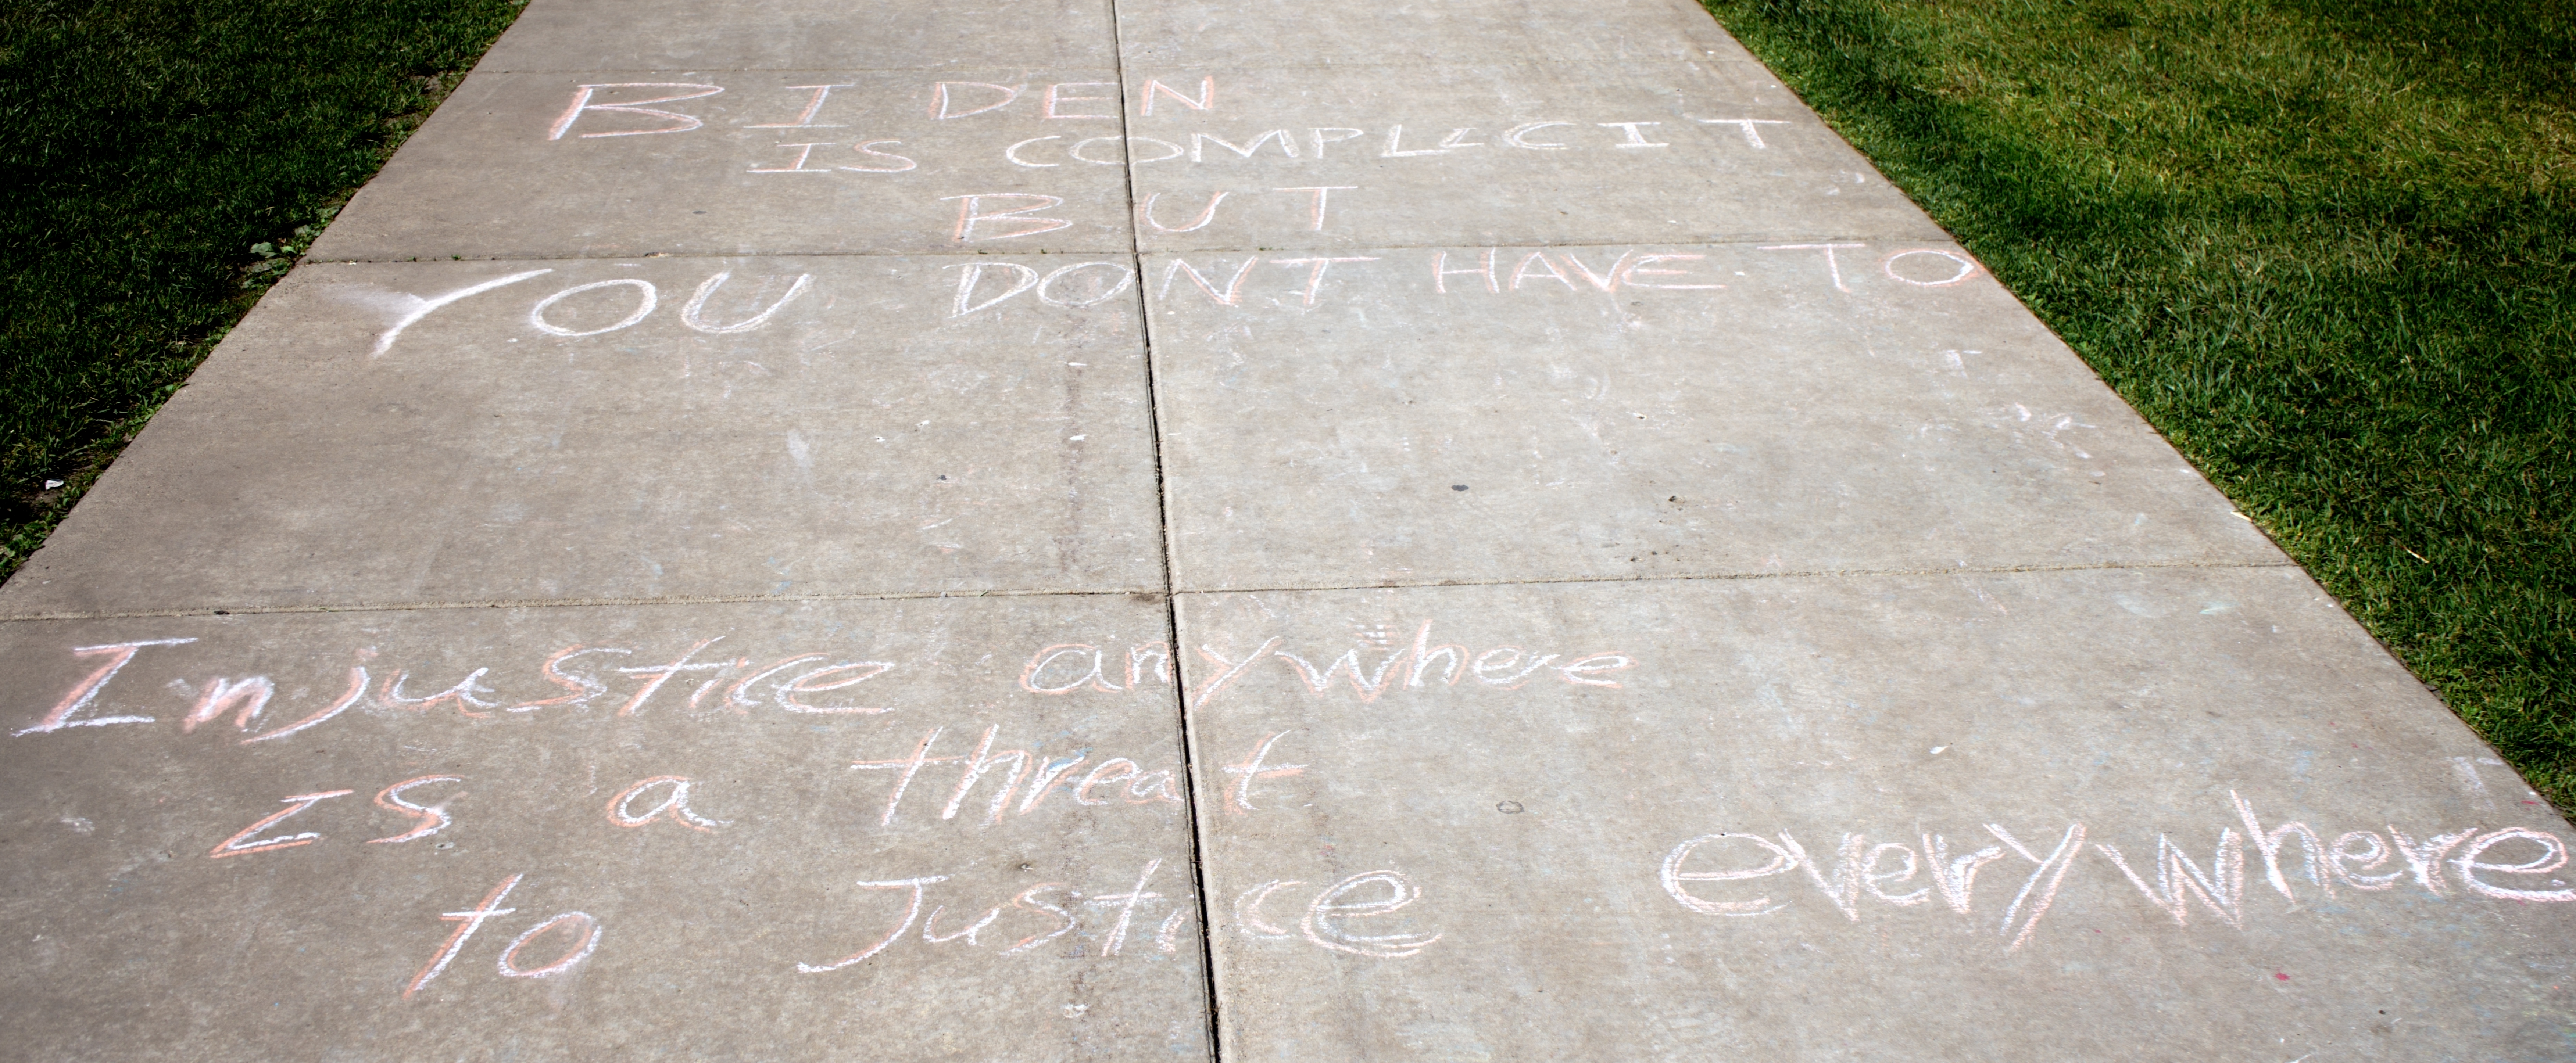 BIDEN
IS COMPLICIT
BUT
YOU DONT HAVE TO
Injustice anywhere
is a threat
to Justice everywhere